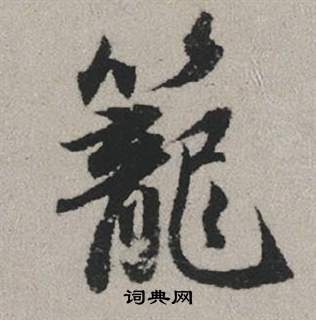 籠
词典网